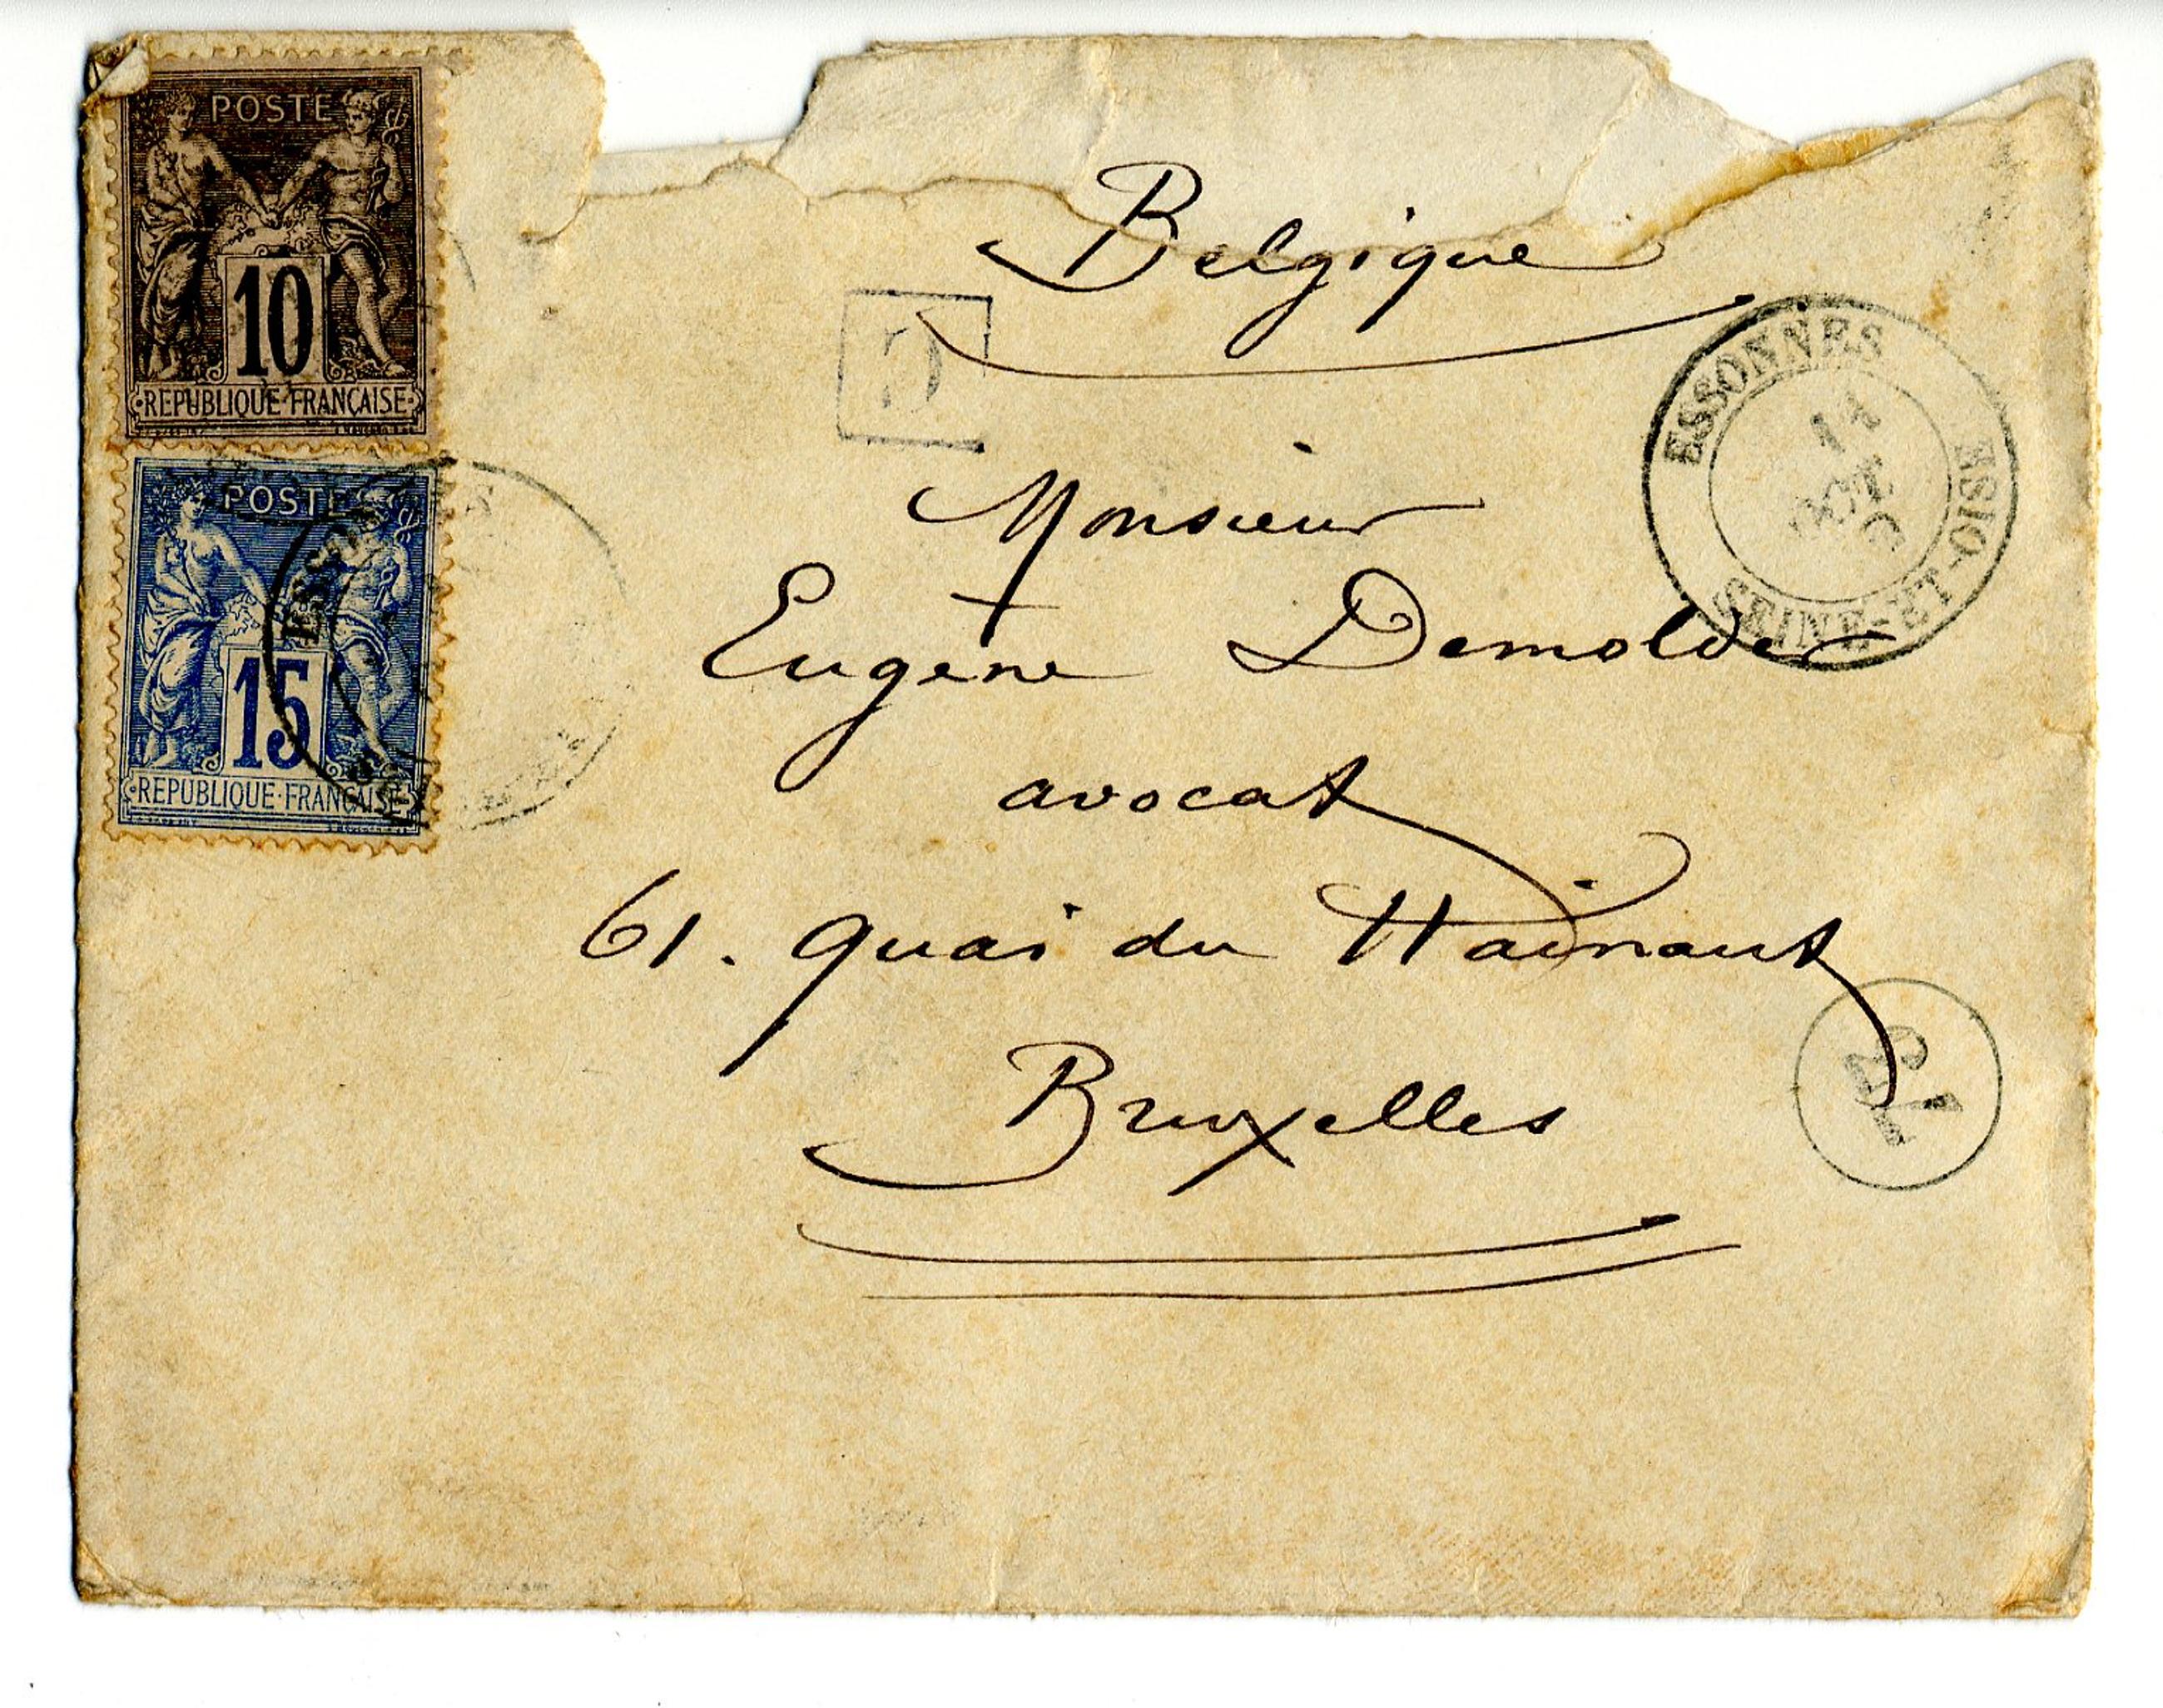 POSTE
10
REPUBLIQUE FRANÇAISE
POSTE
15
REPUBLIQUE FRANÇAISE
Belgique
ESSONNES
OCT
SEINE-ET-OISE
Monsieur
Eugène Demolder
avocat
61. quai du Hainaut
Bruxelles